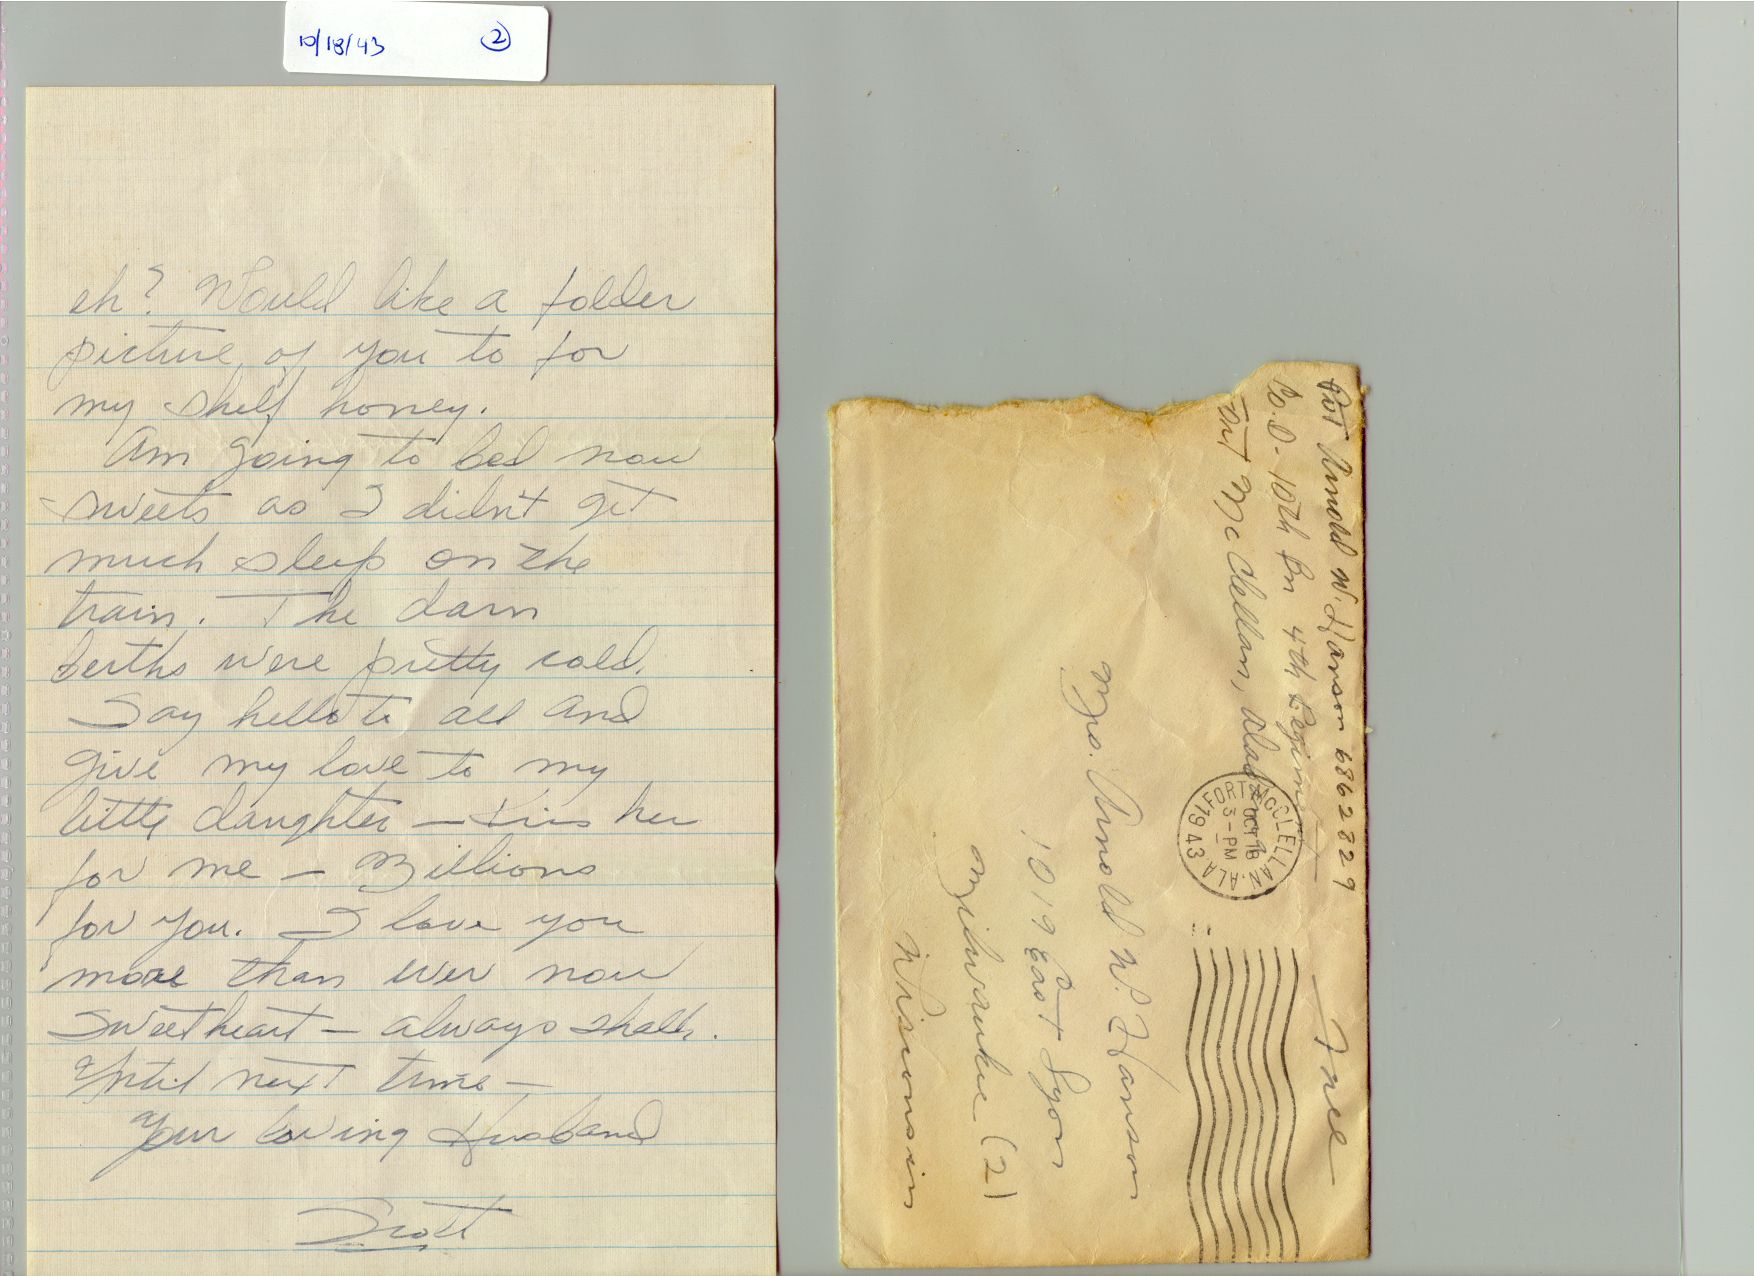 10/18/43 2
eh? Would like a folder
picture of you to for
my shelf honey.
Am going to bed now
sweets as I didn't get
much sleep on the
train. The darn
berths were pretty cold.
Say hello to all and
give my love to my
little daughter — Kiss her
for me — Millions
for you. I love you
more than ever now
Sweetheart — always shall.
Until next time —
Your loving Husband
Scott
Pvt Arnold W. Hanson 6862829
Co. D. 10th Bn 4th Regiment
Fort McClellan, Ala
Free
FORT MCCLELLAN, ALA.
OCT 18
3-PM
1943
Mrs. Arnold W. Hanson
1019 East Lyon
Milwaukee (2)
Wisconsin